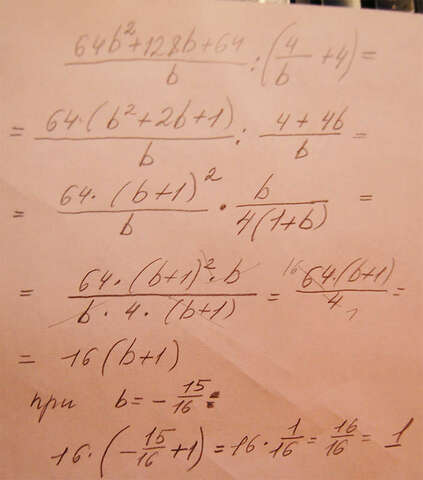 (64b²+128b+64)/b : (4/b + 4) =
= 64·(b²+2b+1)/b : (4+4b)/b =
= 64·(b+1)²/b · b/4(1+b) =
= 64·(b+1)²·b/b·4·(b+1) = 16 64·(b+1)/4 1 =
= 16(b+1)
при b=-15/16:
16·(-15/16+1)=16·1/16=16/16=1